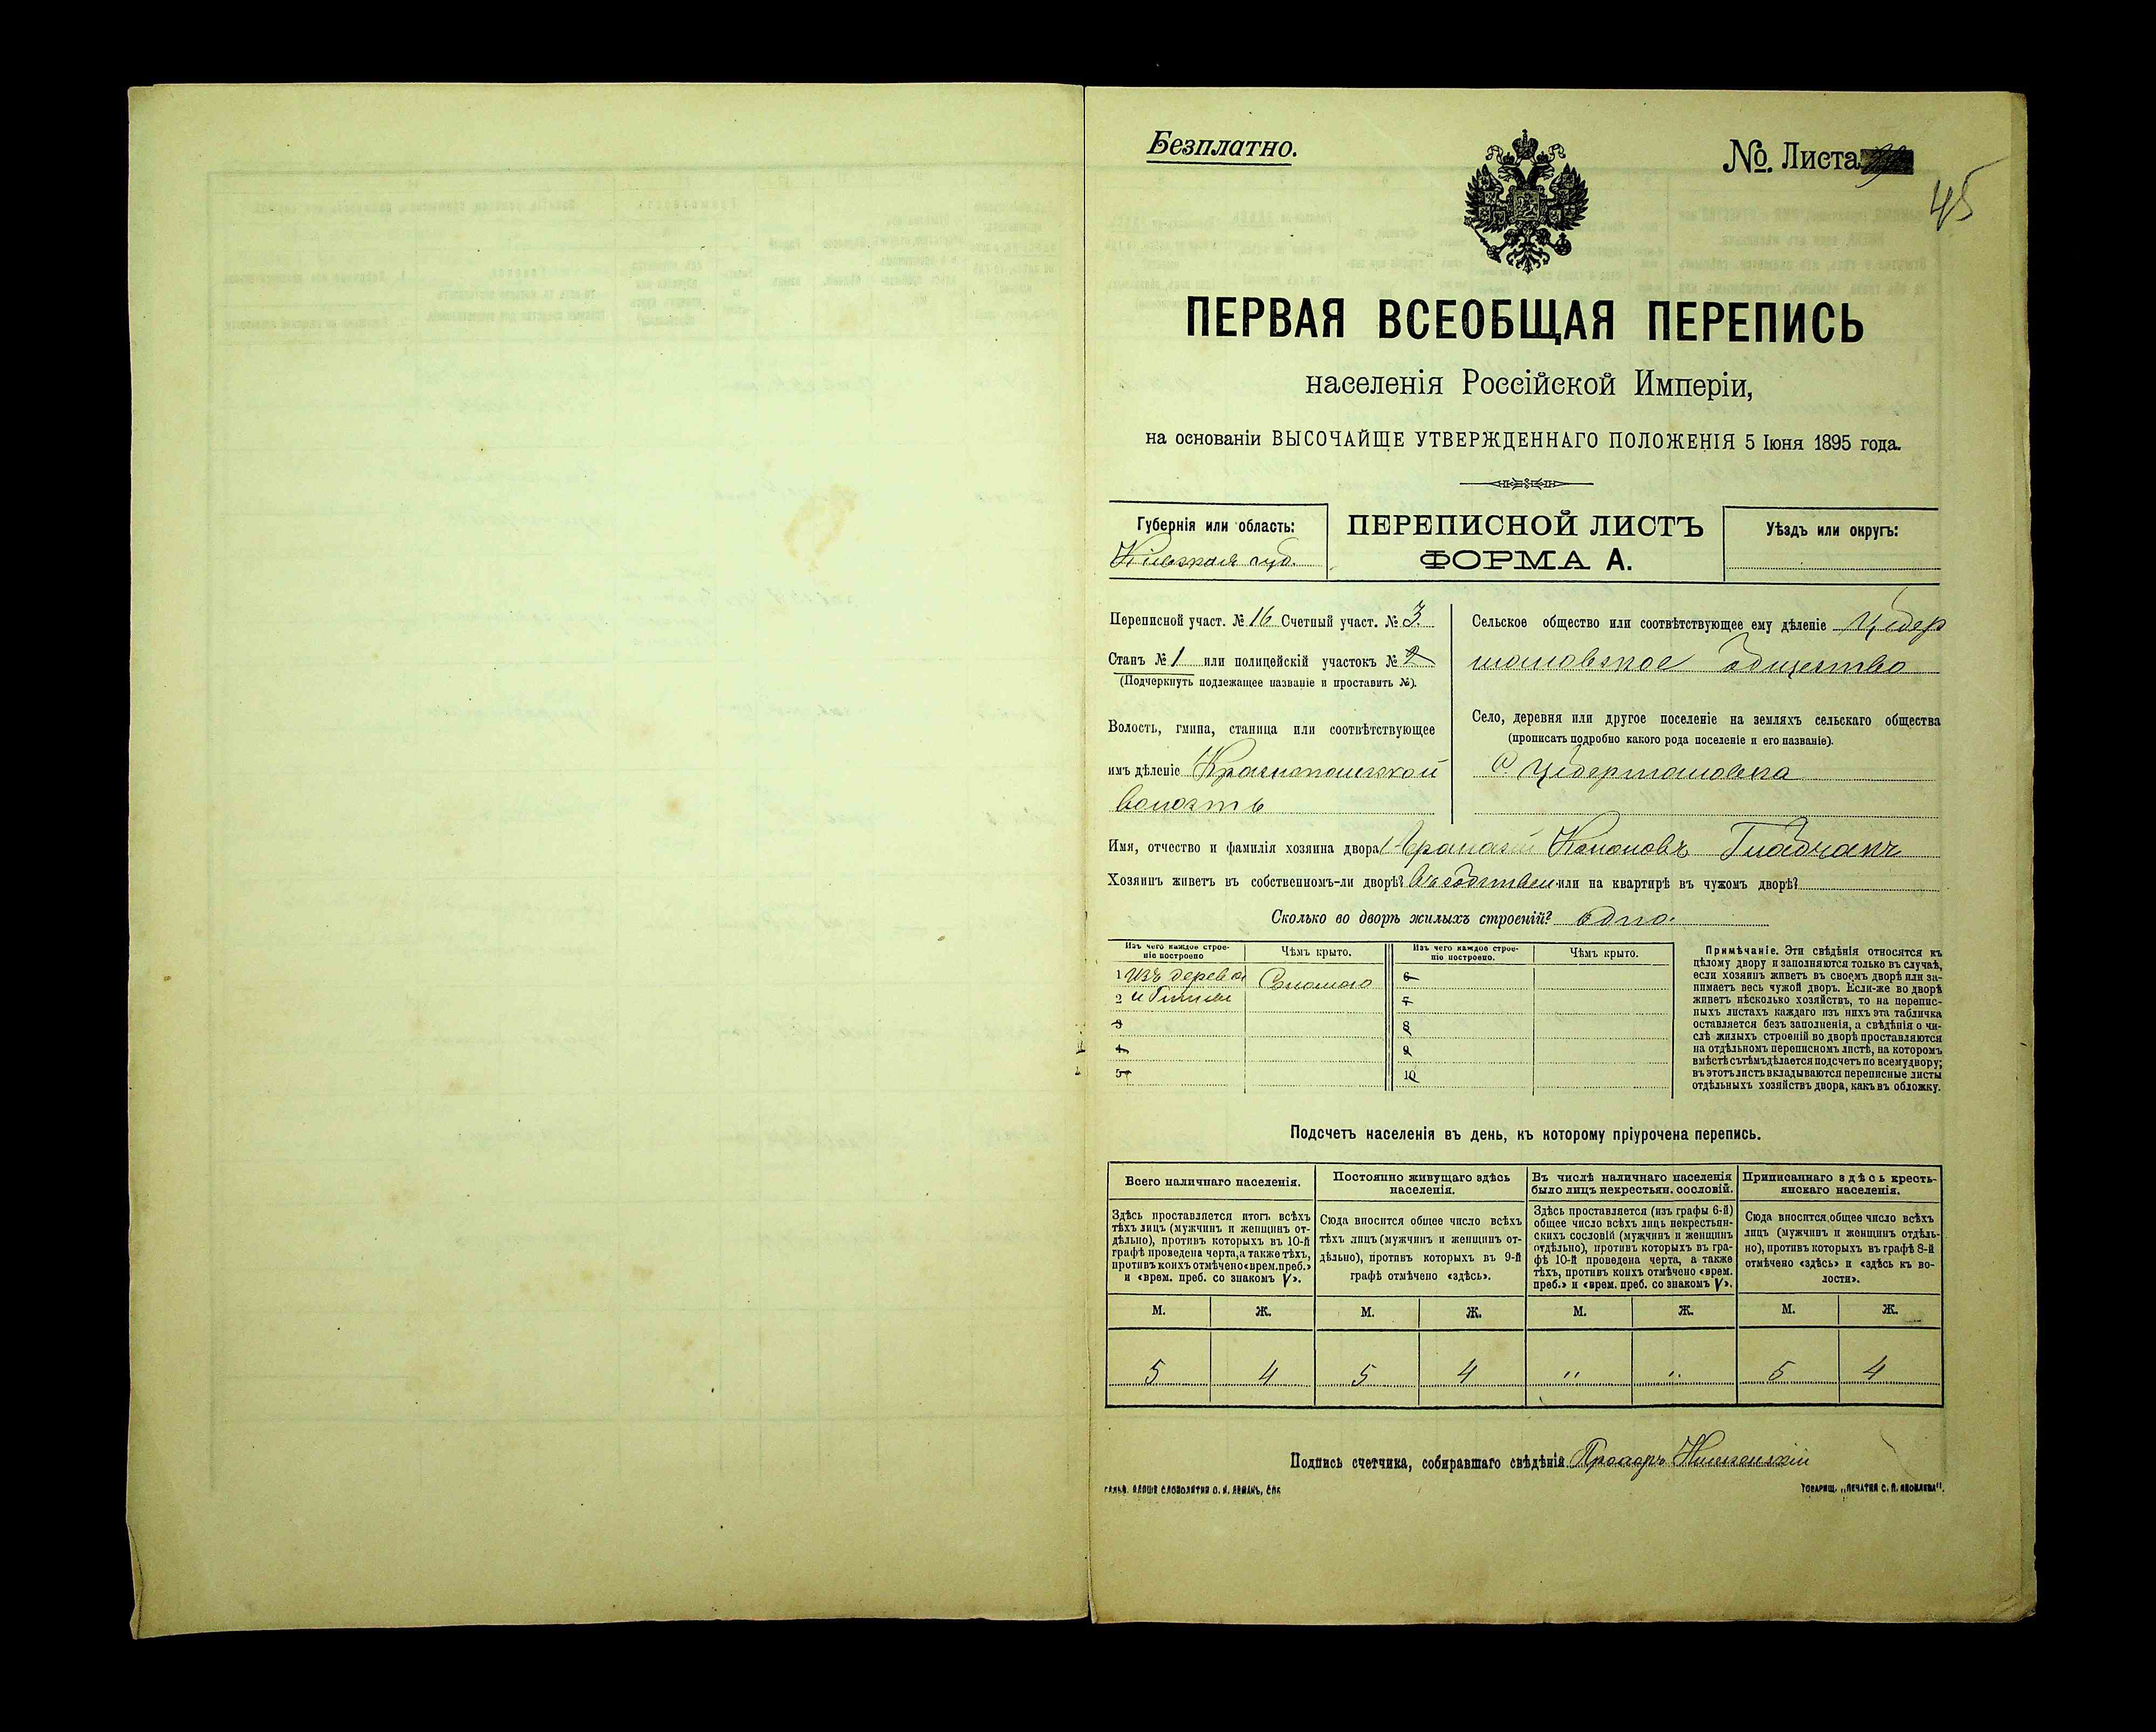 Безплатно.
№ Листа
45
ПЕРВАЯ ВСЕОБЩАЯ ПЕРЕПИСЬ
населенія Россійской Имперіи,
на основаніи ВЫСОЧАЙШЕ УТВЕРЖДЕННАГО ПОЛОЖЕНІЯ 5 Іюня 1895 года.
Губернія или область:
Кіевская губ.
ПЕРЕПИСНОЙ ЛИСТЪ
ФОРМА А.
Уѣздъ или округъ:
Переписной участ. № 16 Счетный участ. № 3.
Станъ № 1 или полицейскій участокъ № 2
(Подчеркнуть подлежащее названіе и проставить №).
Волость, гмина, станица или соотвѣтствующее
имъ дѣленіе Краснопольской
волость
Сельское общество или соотвѣтствующее ему дѣленіе Цибер
мановское общество
Село, деревня или другое поселеніе на земляхъ сельскаго общества
(прописать подробно какого рода поселеніе и его названіе).
С. Цибермановка
Имя, отчество и фамилія хозяина двора Кононовъ
Хозяинъ живетъ въ собственномъ-ли дворѣ? въ собствен. или на квартирѣ въ чужомъ дворѣ?
Сколько во дворѣ жилыхъ строеній? одно.
Изъ чего каждое строе-
ніе построено
Чѣмъ крыто.
Изъ чего каждое строе-
ніе построено.
Чѣмъ крыто.
1 Изъ дерева Соломою 6
2 и глины 7
3 8
4 9
5 10
Примѣчаніе. Эти свѣдѣнія относятся къ
цѣлому двору и заполняются только въ случаѣ,
если хозяинъ живетъ въ своемъ дворѣ или за-
нимаетъ весь чужой дворъ. Если-же во дворѣ
живетъ нѣсколько хозяйствъ, то на перепис-
ныхъ листахъ каждаго изъ нихъ эта табличка
оставляется безъ заполненія, а свѣдѣнія о чи-
слѣ жилыхъ строеній во дворѣ проставляются
на отдѣльномъ переписномъ листѣ, на которомъ
вмѣстѣ съ тѣмъ дѣлается подсчетъ по всему двору;
въ этотъ листъ вкладываются переписные листы
отдѣльныхъ хозяйствъ двора, какъ въ обложку.
Подсчетъ населенія въ день, къ которому пріурочена перепись.
Всего наличнаго населенія.
Постоянно живущаго здѣсь
населенія.
Въ числѣ наличнаго населенія
было лицъ некрестьян. сословій.
Приписаннаго здѣсь кресть-
янскаго населенія.
Здѣсь проставляется итогъ всѣхъ
тѣхъ лицъ (мужчинъ и женщинъ от-
дѣльно), противъ которыхъ въ 10-й
графѣ проведена черта, а также тѣхъ,
противъ коихъ отмѣчено «врем. преб.»
и «врем. преб. со знакомъ V».
Сюда вносится общее число всѣхъ
тѣхъ лицъ (мужчинъ и женщинъ от-
дѣльно), противъ которыхъ въ 9-й
графѣ отмѣчено «здѣсь».
Здѣсь проставляется (изъ графы 6-й)
общее число всѣхъ лицъ некрестьян-
скихъ сословій (мужчинъ и женщинъ
отдѣльно), противъ которыхъ въ гра-
фѣ 10-й проведена черта, а также
тѣхъ, противъ коихъ отмѣчено «врем.
преб.» и «врем. преб. со знакомъ V».
Сюда вносится общее число всѣхъ
лицъ (мужчинъ и женщинъ отдѣль-
но), противъ которыхъ въ графѣ 8-й
отмѣчено «здѣсь» и «здѣсь къ во-
лости».
М. Ж. М. Ж. М. Ж. М. Ж.
5 4 5 4 " " 5 4
Подпись счетчика, собиравшаго свѣдѣнія Прохоръ
ГАЛЬВ. КЛИШЕ СЛОВОЛИТНИ О. И. ЛЕМАНЪ, СПБ
ТОВАРИЩ. „ПЕЧАТНЯ С. П. ЯКОВЛЕВА“.